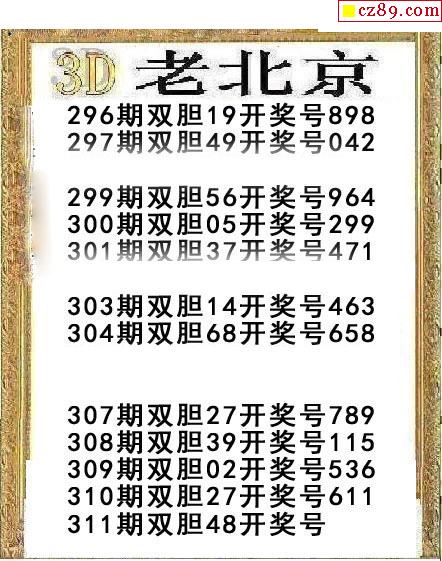 cz89.com
3D 老北京
296期双胆19开奖号898
297期双胆49开奖号042
299期双胆56开奖号964
300期双胆05开奖号299
301期双胆37开奖号471
303期双胆14开奖号463
304期双胆68开奖号658
307期双胆27开奖号789
308期双胆39开奖号115
309期双胆02开奖号536
310期双胆27开奖号611
311期双胆48开奖号